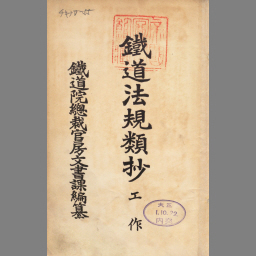 鐵道法規類抄
工作
鐵道院總裁官房文書課編纂